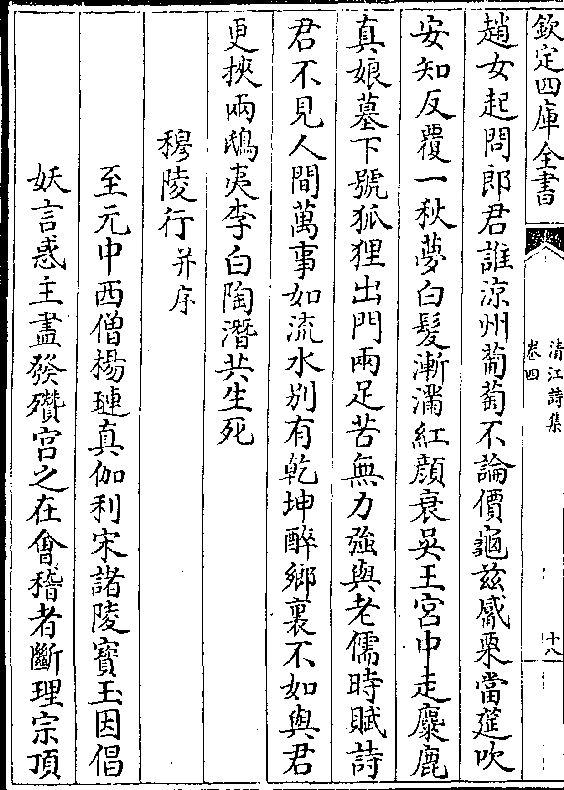 欽定四庫全書
清江詩集
卷四
十八
趙女起問郎君誰涼州葡萄不論價龜兹觱栗當筵吹
安知反覆一秋夢白髮漸滿紅顔衰吳王宮中走麋鹿
真娘墓下號狐狸出門兩足苦無力強與老儒時賦詩
君不見人間萬事如流水别有乾坤醉鄉裏不如與君
更挾兩鴟夷李白陶潛共生死
穆陵行并序
至元中西僧楊璉真伽利宋諸陵寳玉因倡
妖言惑主盡發欑宮之在會稽者斷理宗頂